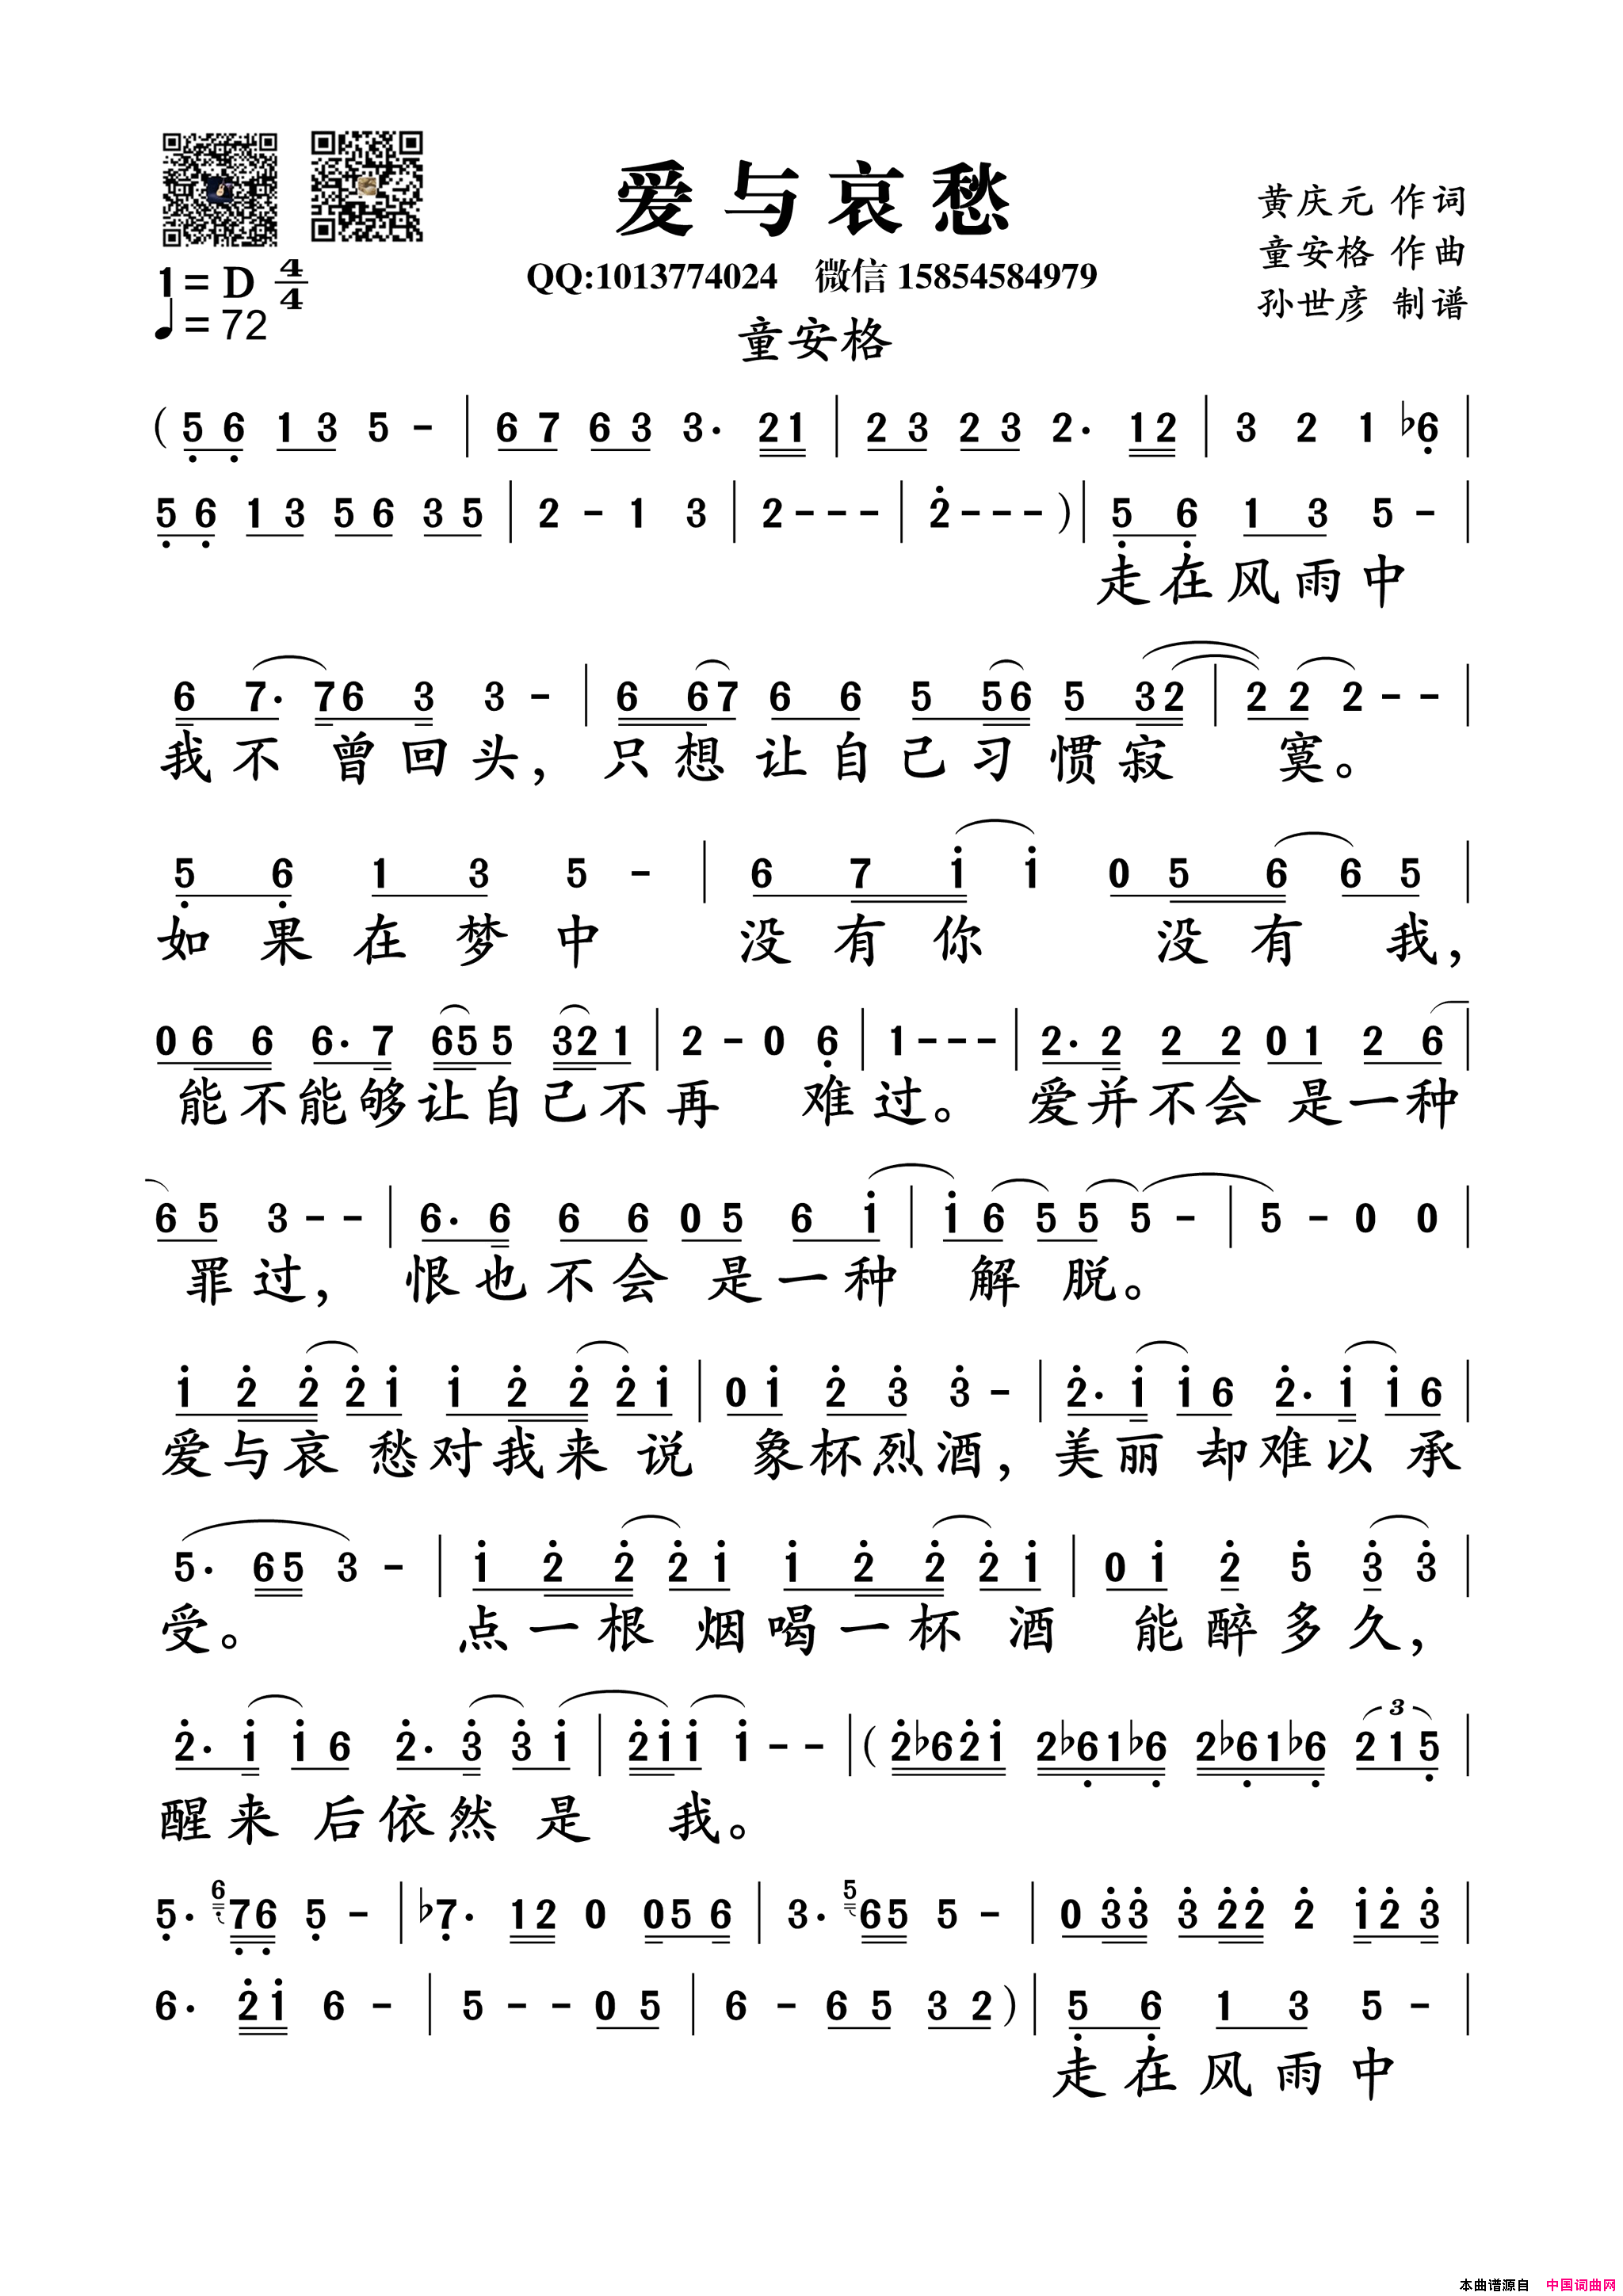 爱与哀愁
黄庆元 作词
QQ:1013774024 微信 15854584979
童安格 作曲
1=D 4/4
孙世彦 制谱
♩=72
童安格
( 5̣ 6̣ 1 3 5 - | 6 7 6 3 3. 2 1 | 2 3 2 3 2. 1 2 | 3 2 1 ♭6̣ |
5̣ 6̣ 1 3 5 6 3 5 | 2 - 1 3 | 2 - - - | 2̇ - - - ) | 5̣ 6̣ 1 3 5 - |
走在风雨中
6 7. 7 6 3 3 - | 6 6 7 6 6 5 5 6 5 3 2 | 2 2 2 - - |
我不 曾回头, 只想让自己习惯寂 寞。
5̣ 6̣ 1 3 5 - | 6 7 1̇ 1̇ 0 5 6 6 5 |
如果在梦中 没有你 没有 我,
0 6 6 6. 7 6 5 5 3 2 1 | 2 - 0 6̣ | 1 - - - | 2. 2 2 2 0 1 2 6 |
能不能够让自己不再 难过。 爱并不会是一种
6 5 3 - - | 6. 6 6 6 0 5 6 1̇ | 1̇ 6 5 5 5 - | 5 - 0 0 |
罪过, 恨也不会是一种 解脱。
1̇ 2̇ 2̇ 2̇ 1̇ 1̇ 2̇ 2̇ 2̇ 1̇ | 0 1̇ 2̇ 3̇ 3̇ - | 2̇. 1̇ 1̇ 6 2̇. 1̇ 1̇ 6 |
爱与哀 愁对我来 说 象杯烈酒, 美丽 却难以 承
5. 6 5 3 - | 1̇ 2̇ 2̇ 2̇ 1̇ 1̇ 2̇ 2̇ 2̇ 1̇ | 0 1̇ 2̇ 5̇ 3̇ 3̇ |
受。 点一根 烟喝一杯 酒 能醉多久,
2̇. 1̇ 1̇ 6 2̇. 3̇ 3̇ 1̇ | 2̇ 1̇ 1̇ 1̇ - - | ( 2̇ ♭6 2̇ 1̇ 2 ♭6̣ 1 ♭6̣ 2 ♭6̣ 1 ♭6̣ 3 2 1 5̣ |
醒来 后依然 是 我。
5̣. 6 7̣ 6̣ 5̣ - | ♭7̣. 1 2 0 0 5 6 | 3. 5 6 5 5 - | 0 3̇ 3̇ 3̇ 2̇ 2̇ 2̇ 1̇ 2̇ 3̇ |
6. 2̇ 1̇ 6 - | 5 - - 0 5 | 6 - 6 5 3 2 ) | 5̣ 6̣ 1 3 5 - |
走在风雨中
本曲谱源自 中国词曲网